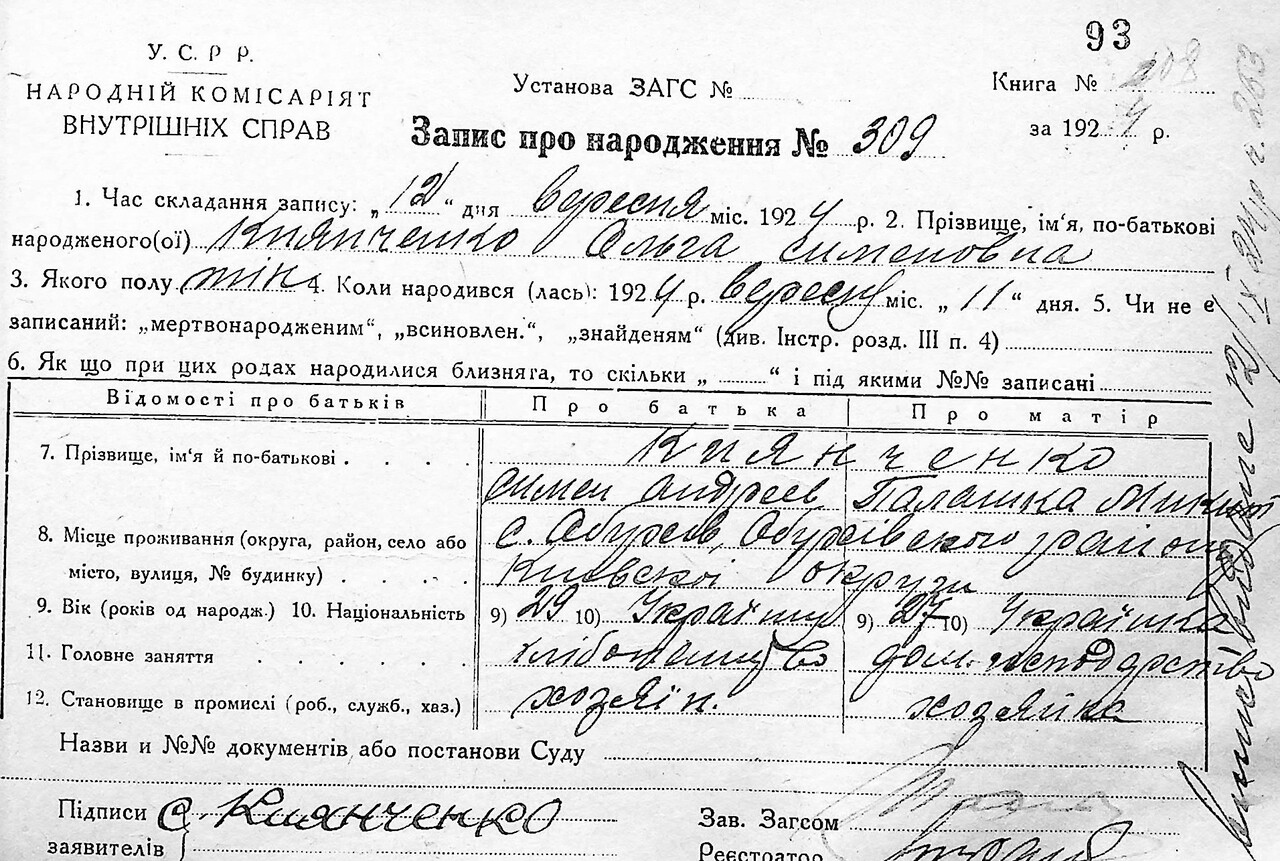 93
У. С. Р Р.
НАРОДНІЙ КОМІСАРІЯТ
ВНУТРІШНІХ СПРАВ
Установа ЗАГС №
Книга № 208
за 1924 р.
Запис про народження № 309
1. Час складання запису: „12“ дня вересня міс. 1924 р. 2. Прізвище, ім'я, по-батькові
народженого(ої) Киянченко Ольга Сименовна
3. Якого полу жін 4. Коли народився (лась): 1924 р. вересня міс. „11“ дня. 5. Чи не є
записаний: „мертвонародженим“, „всиновлен.“, „знайденям“ (див. Інстр. розд. III п. 4)
6. Як що при цих родах народилися близняга, то скільки „ “ і під якими №№ записані
Відомості про батьків Про батька Про матір
7. Прізвище, ім'я й по-батькові . . . . Киянченко
Симен Андреев Палашка
8. Місце проживання (округа, район, село або с. Обухов, Обухівского району
місто, вулиця, № будинку) . . . . Киевскої округи
9. Вік (років од народж.) 10. Національність 9) 29 10) Українец 9) 27 10) Українка
11. Головне заняття . . . . . хлібопашество дом. господарство
12. Становище в промислі (роб., служб., хаз.) хозяїн. хозяйка
Назви и №№ документів або постанови Суду
Підписи С. Киянченко
заявителів
Зав. Загсом
Реєстратор
видане 12/IX 24 р. 283